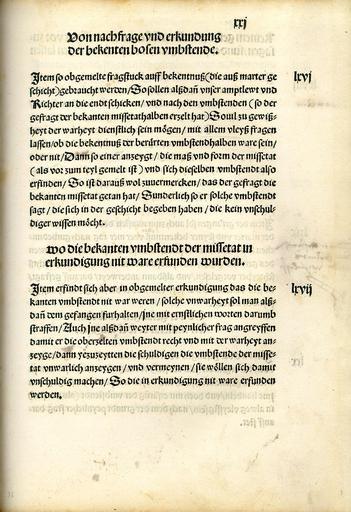 xxj
Von nachfrage vnd erkundung
der bekenten bosen vmbstende.
lxvj
Jtem so obgemelte fragstuck auff bekentnuß (die auß marter ge
schicht) gebraucht werden / So sollen alßdañ vnser amptlewt vnd
Richter an die endt schicken / vnd nach den vmbstenden (so der
gefragt der bekanten missetathalben erzelt hat) So uil zu gewiß-
heyt der warheyt dienstlich sein mögen / mit allem vleyß fragen
lassen / ob die bekentnuß der berürten vmbstendhalben ware sein /
oder nit / Dann so einer anzeygt / die maß vnd form der missetat
(als vor zum teyl gemelt ist) vnd sich dieselben vmbstendt also
erfinden / So ist darauß wol zuuermercken / das der gefragt die
bekanten missetat getan hat / Sunderlich so er solche vmbstendt
sagt / die sich in der geschicht begeben haben / die kein vnschul-
diger wissen möcht.
wo die bekanten vmbstendt der missetat in
erkundigung nit ware erfunden wurden.
lxvij
Jtem erfindt sich aber in obgemelter erkundigung das die be-
kanten vmbstendt nit war weren / solche vnwarheyt sol man alß-
dañ dem gefangen furhalten / Jne mit ernstlichen worten darumb
straffen / Auch Jne alßdañ weyter mit peynlicher frag angreyffen
damit er die oberzelten vmbstendt recht vnd mit der warheyt an-
zeyge / dann ye zuzeytten die schuldigen die vmbstende der misse-
tat vnwarlich anzeygen / vnd vermeynen / sie wöllen sich damit
vnschuldig machen / So die in erkundigung nit ware erfunden
werden.